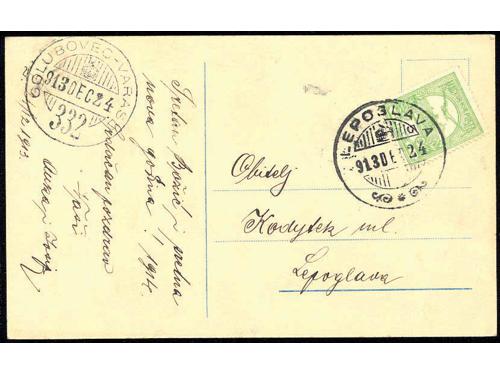 GOLUBOVEC-VARASD
913 DEC 24
332
Sretan Božić i sretna
nova godina! 1914.
Srdačan pozdrav
LEPOGLAVA
913 DEC 24
Obitelj
Kodytek ml.
Lepoglava